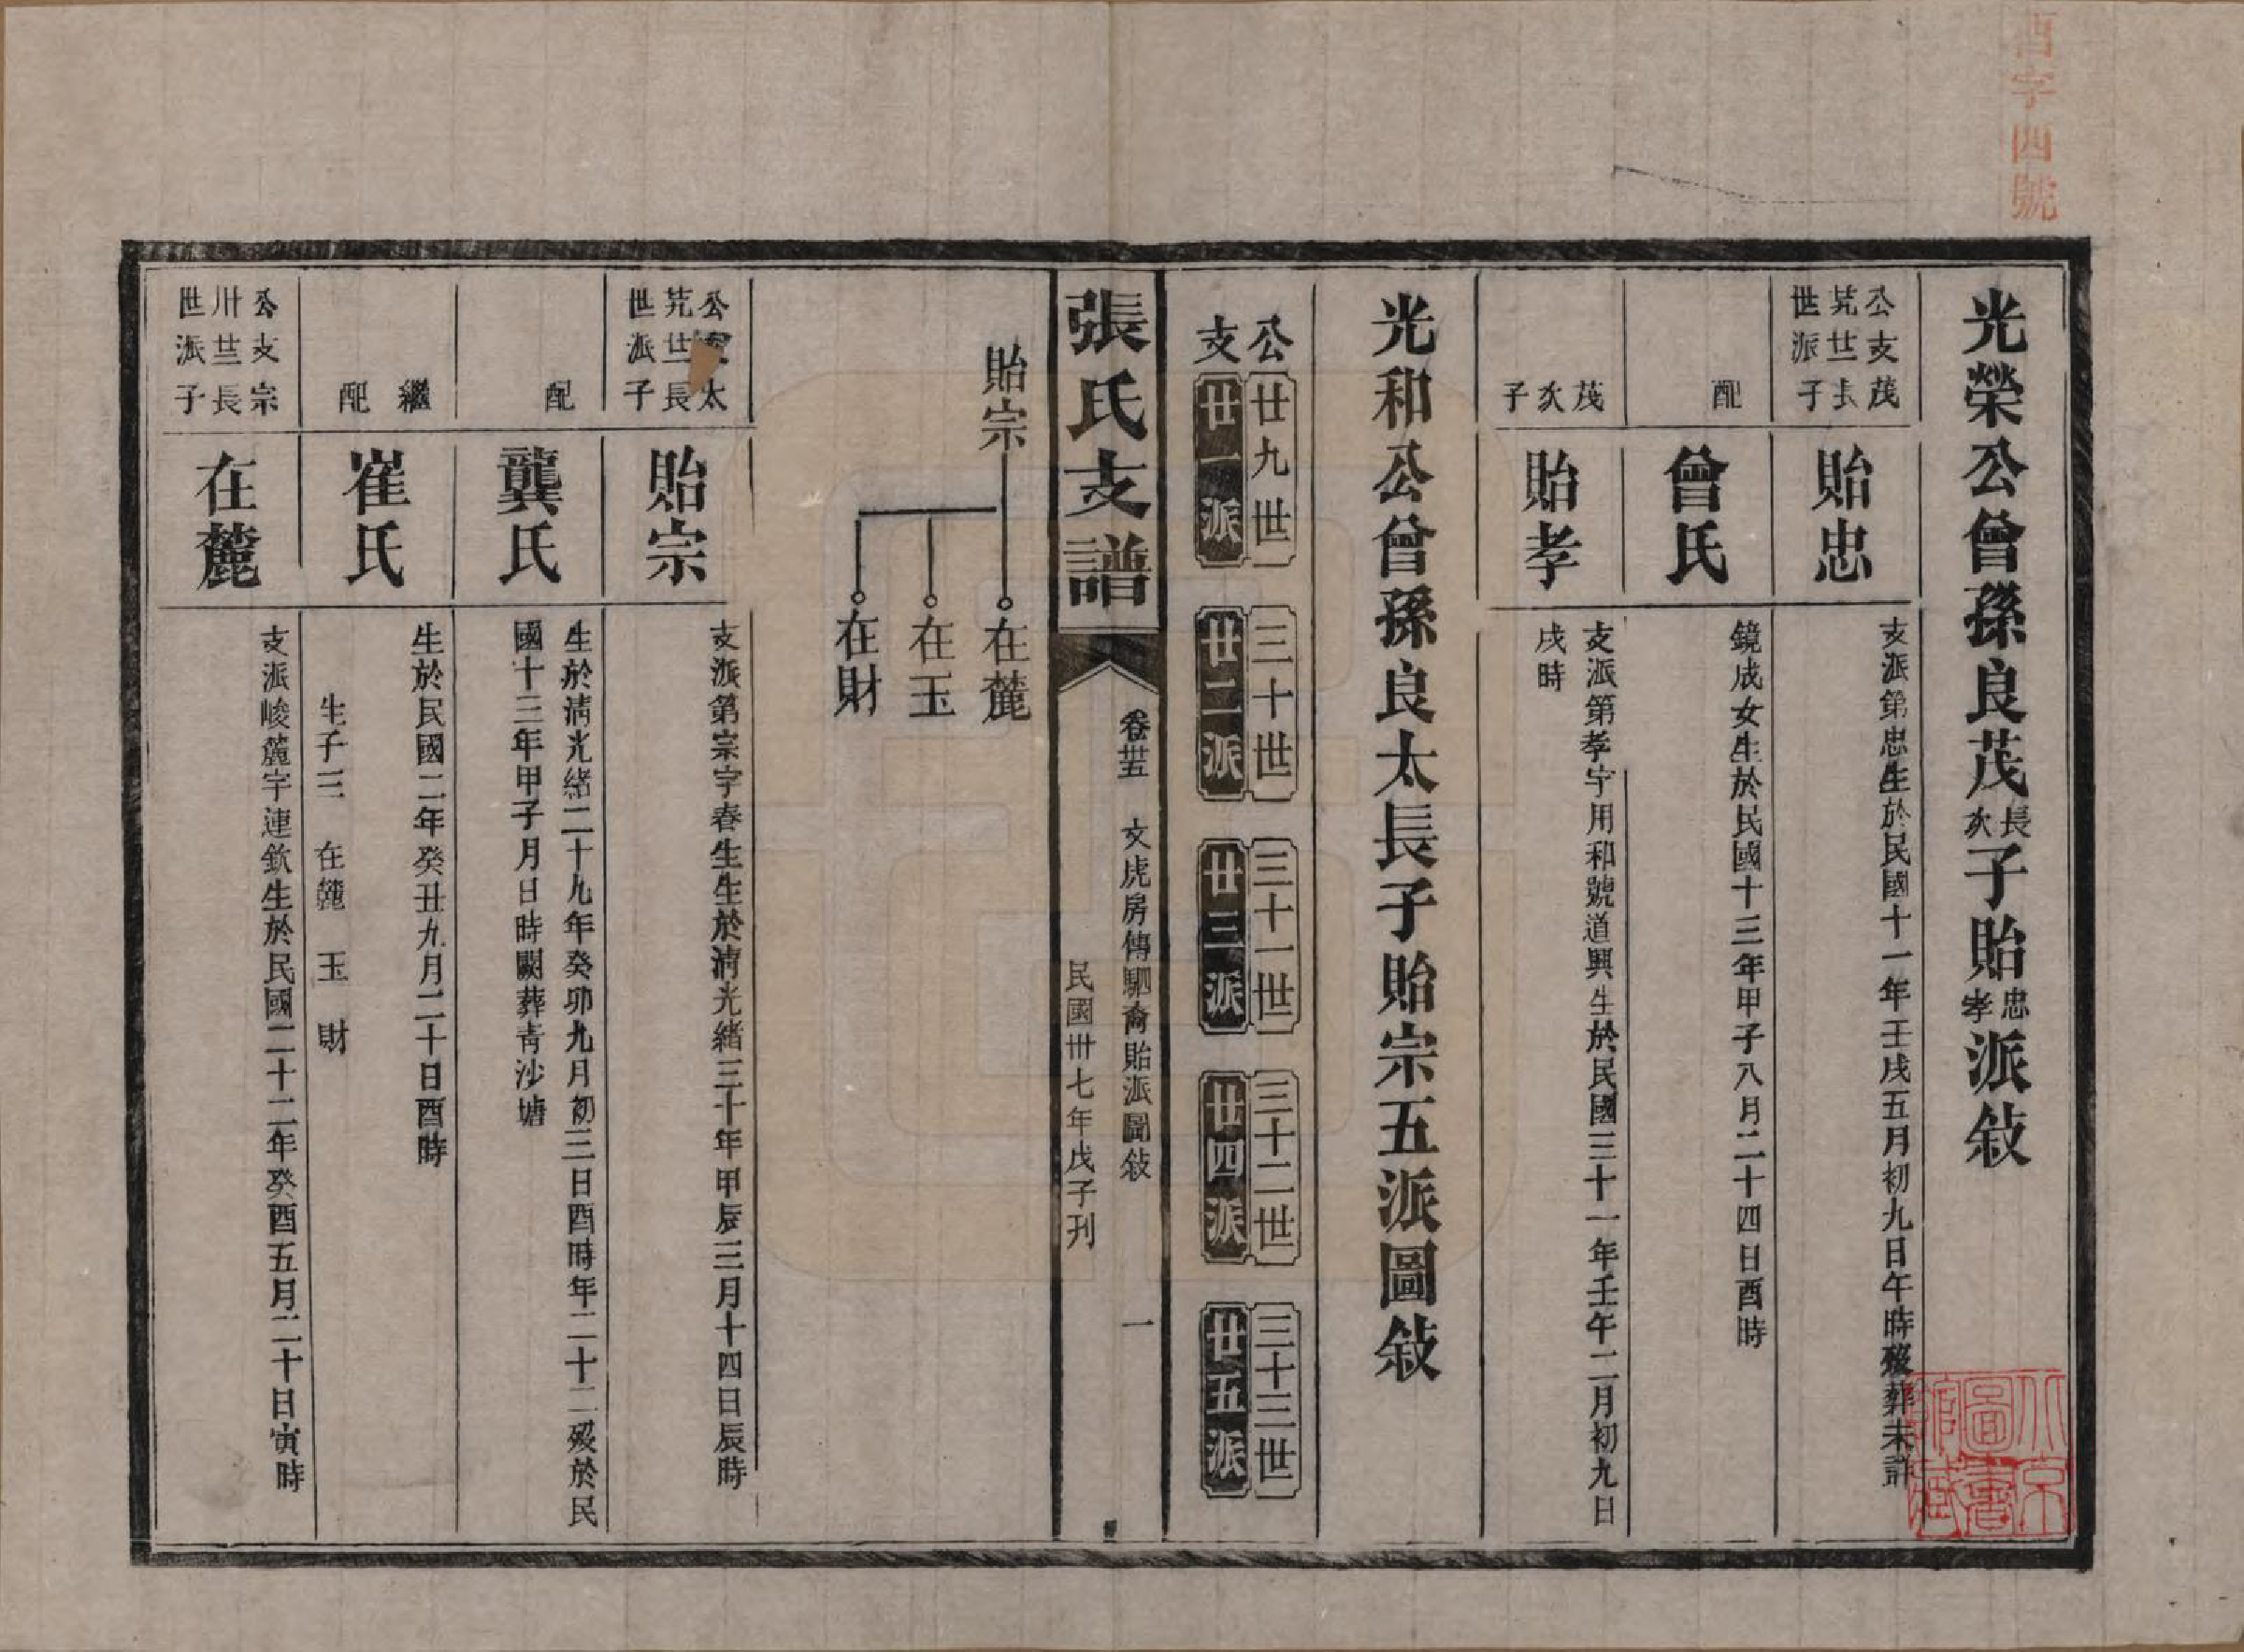 字四號
光榮公曾孫良茂長次子貽忠孝派敍
公支茂
廿世長
世派子
貽忠
支派第忠生於民國十一年壬戌五月初九日午時歿葬未詳
配
曾氏
鏡成女生於民國十三年甲子八月二十四日酉時
茂次子
貽孝
支派第孝字用和號道興生於民國三十一年壬午二月初九日
戌時
光和公曾孫良太長子貽宗五派圖敍
公支
廿九世
廿一派
三十世
廿二派
三十一世
廿三派
三十二世
廿四派
三十三世
廿五派
張氏支譜
卷卅五 文虎房傳駟裔貽派圖敍 一
民國卅七年戊子刊
貽宗
在麓
在玉
在財
公 太
世長
世派子
貽宗
支派第宗字春生生於清光緒三十年甲辰三月十四日辰時
配
龔氏
生於清光緒二十九年癸卯九月初三日酉時年二十二歿於民
國十三年甲子月日時闕葬青沙塘
繼配
崔氏
生於民國二年癸丑九月二十日酉時
生子三 在麓 玉 財
公支宗
卅世長
世派子
在麓
支派峻麓字連欽生於民國二十二年癸酉五月二十日寅時
北京圖書館藏